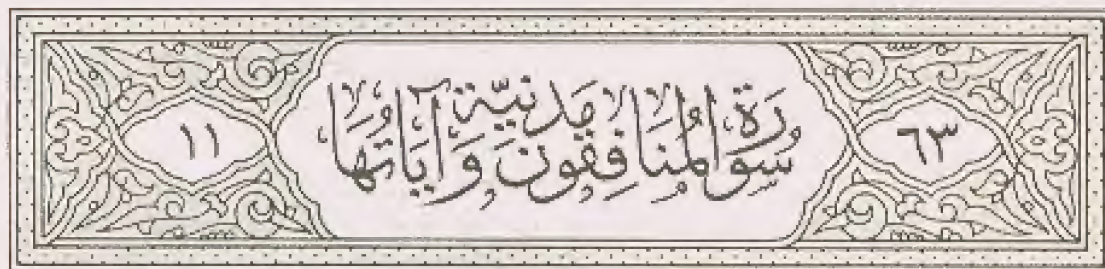 ٦٣
سُورَة المُنَافِقُون مَدَنيّة وَآيَاتُهَا
١١